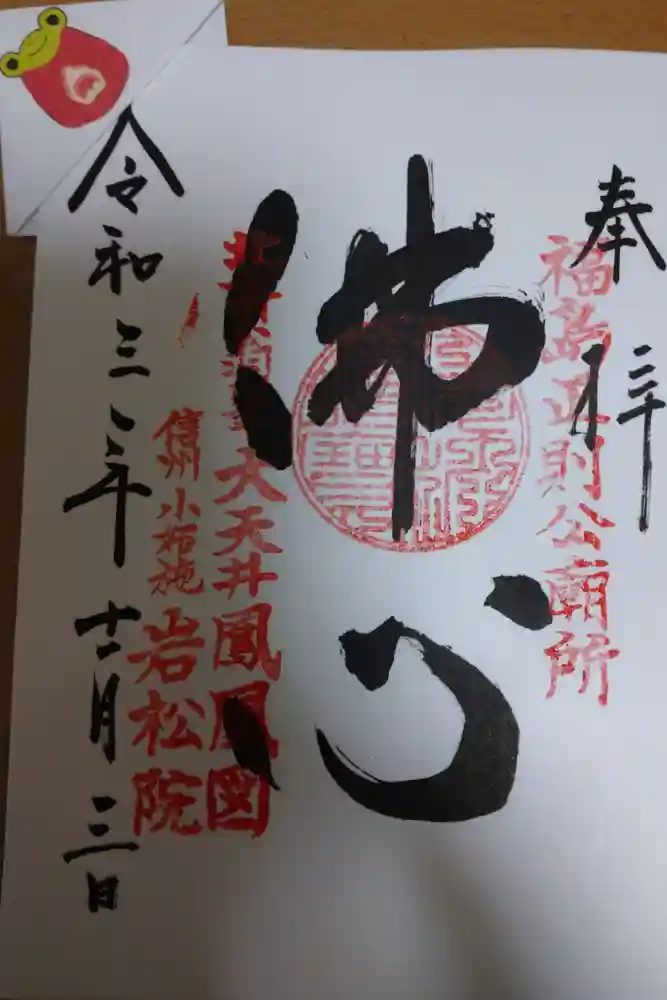 奉拝
福島正則公廟所
佛心
北斎翁筆大天井鳳凰図
信州小布施
岩松院
令和三年十一月三日